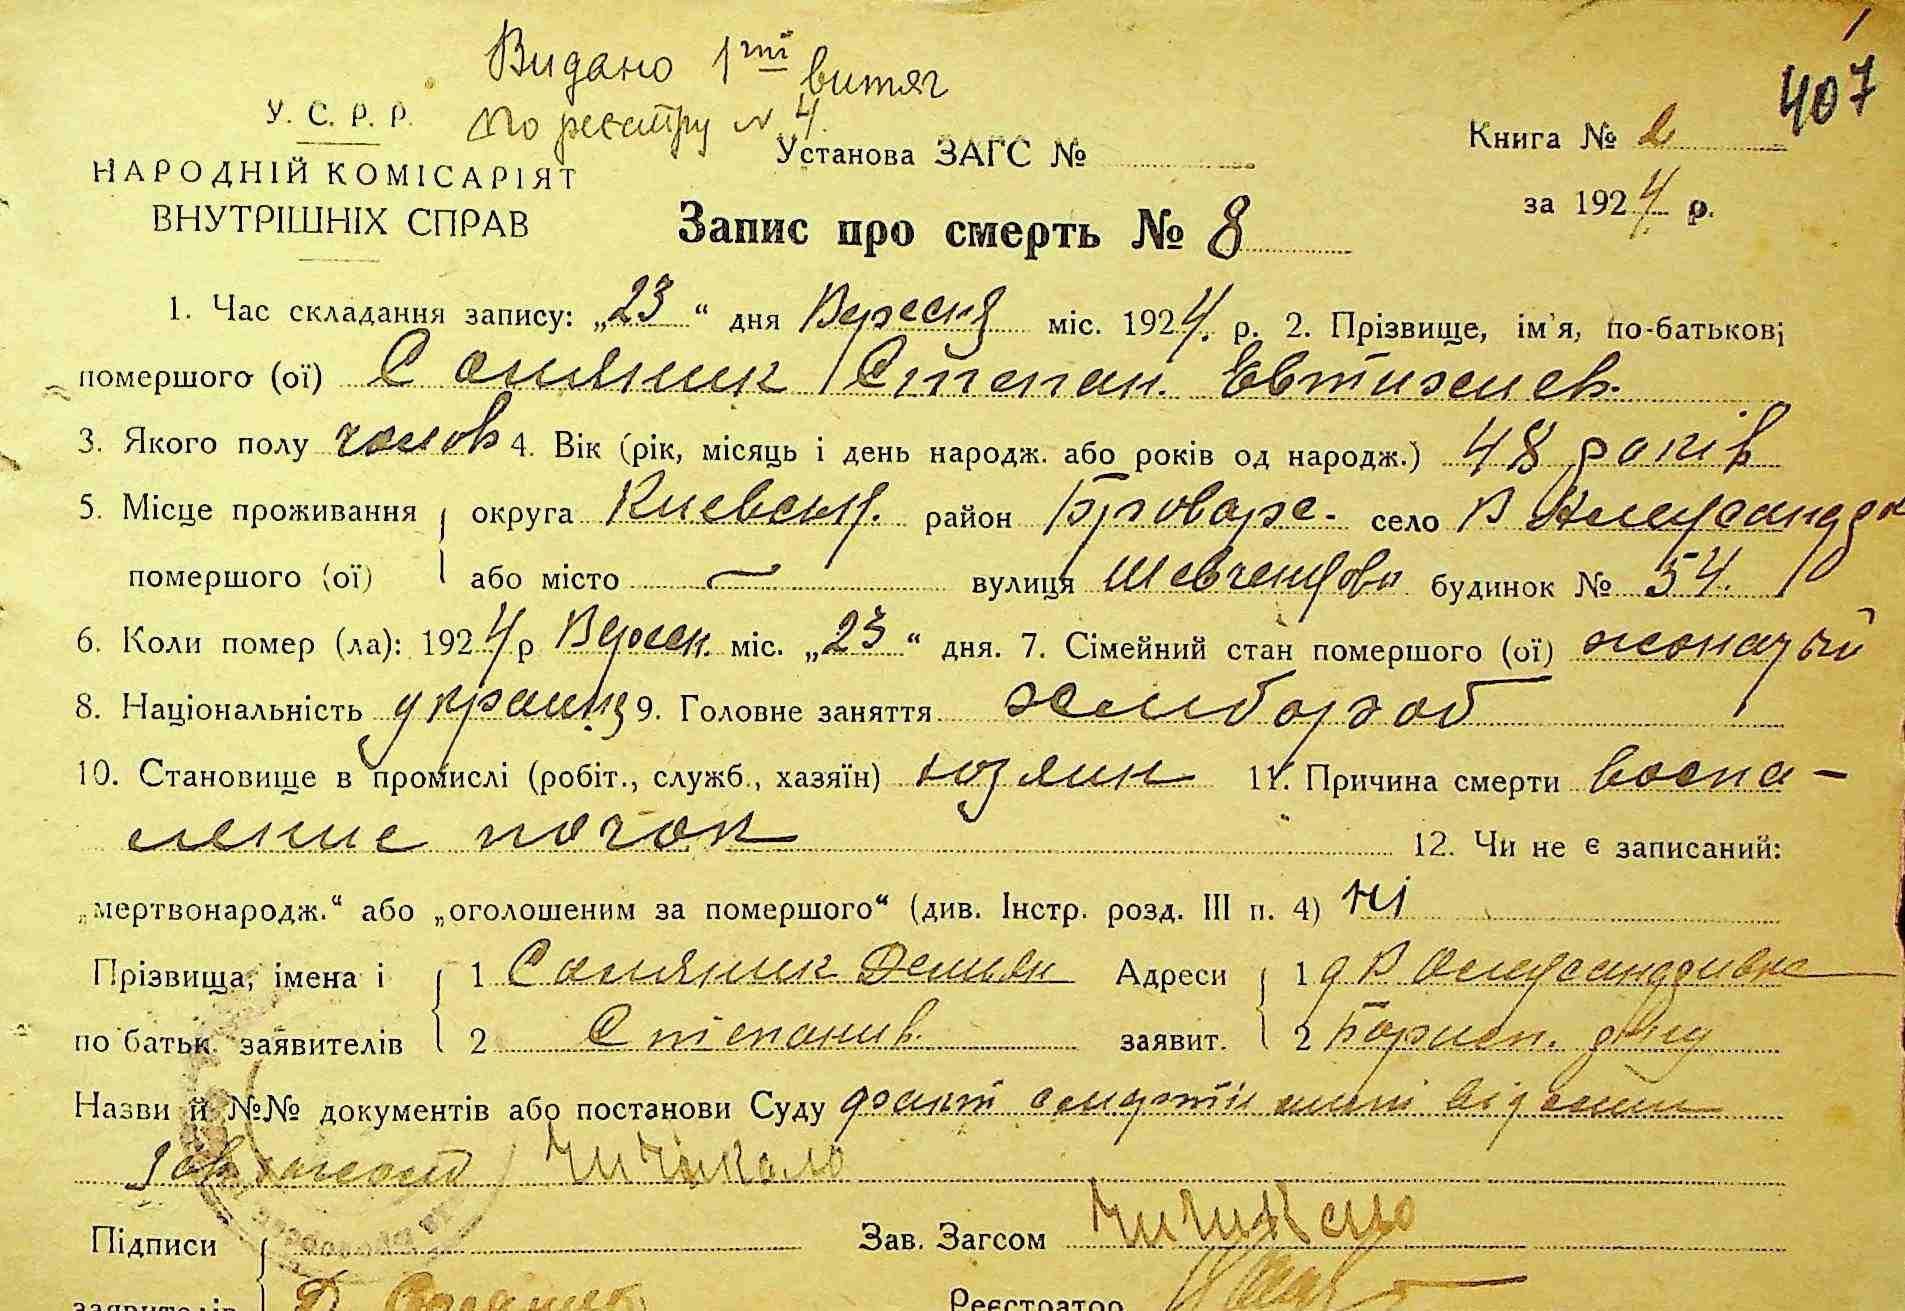 407
Видано 1ший витяг
по реєстру № 4.
У. С. Р. Р.
НАРОДНІЙ КОМІСАРІЯТ
ВНУТРІШНІХ СПРАВ
Установа ЗАГС №
Книга № 2
за 1924 р.
Запис про смерть № 8
1. Час складання запису: „23“ дня Вересня міс. 1924 р. 2. Прізвище, ім'я, по-батькові
помершого (ої) Соляник Степан. Евтихиев.
3. Якого полу чолов 4. Вік (рік, місяць і день народж. або років од народж.) 48 років
5. Місце проживання округа Киевськ. район Броварс- село В Александро
помершого (ої) або місто — вулиця Шевченкова будинок № 54.
6. Коли помер (ла): 1924 р Вересн. міс. „23“ дня. 7. Сімейний стан помершого (ої) жонатый
8. Національність украинц 9. Головне заняття хлибороб
10. Становище в промислі (робіт., служб., хазяїн) хозяин 11. Причина смерти воспа-
ление почок 12. Чи не є записаний:
„мертвонародж.“ або „оголошеним за помершого“ (див. Інстр. розд. III п. 4) ні
Прізвища, імена і 1 Соляник Демьян Адреси 1 В Олександривка
по батьк. заявителів 2 Степанив. заявит. 2 Борисп.
Назви й №№ документів або постанови Суду факт смерти мині відомий
Чичикало
Підписи Зав. Загсом Чичикало
заявителів Д Соляник Реєстратор